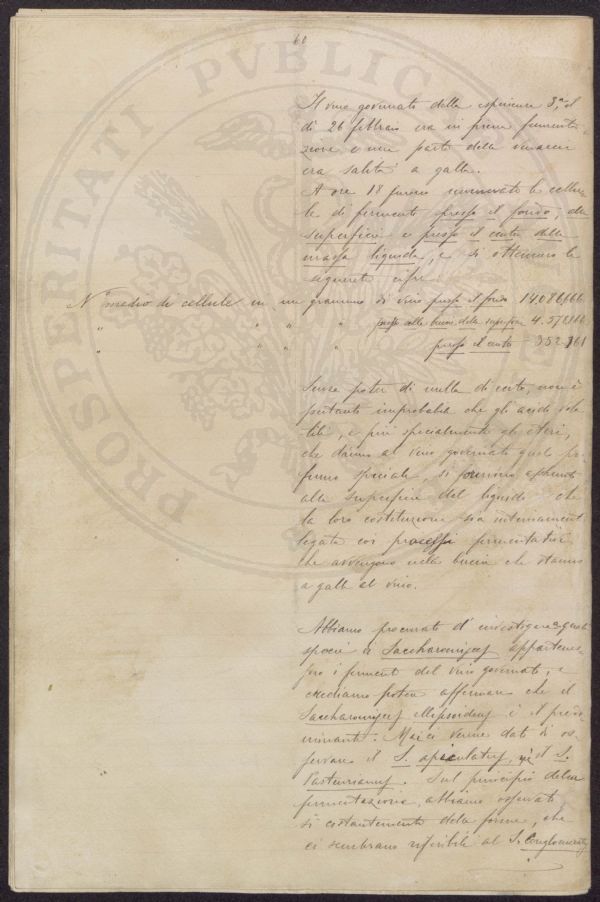 60
Il vino governato della esperienza 3ª, il
dì 26 febbraio era in piena fermenta-
zione e una parte della vinaccia
era salita a galla.
A ore 18 furono numerate le cellu-
le di fermento presso il fondo, alla
superficie e presso il centro della
massa liquida, e si ottennero le
seguenti cifre
Nº medio di cellule in un grammo di vino presso il fondo 14.086,666
" " " " presso alle bucce della superficie 4.576,166
" presso il centro 352.361
Senza poter dir nulla di certo, non è
pertanto improbabile che gli acidi vola-
tili, e più specialmente gli eteri,
che danno al vino governato quel pro-
fumo speciale, si formino appunto
alla superficie del liquido che
la loro costituzione sia intimamente
legata coi processi fermentativi
che avvengono nelle bucce che stanno
a galla al vino.
Abbiamo procurato d'investigare a quali
specie di Saccharomyces appartenes-
sero i fermenti del vino governato, e
crediamo poter affermare che il
Saccharomyces ellipsoideus è il predo-
minante. Mai ci venne dato di os-
servare il S. apiculatus, nè il S.
Pasteurianus. Sul principio della
fermentazione, abbiamo osservato
sì costantemente delle forme, che
ci sembrano riferibili al S. Conglomeratus
PROSPERITATI PVBLICAE